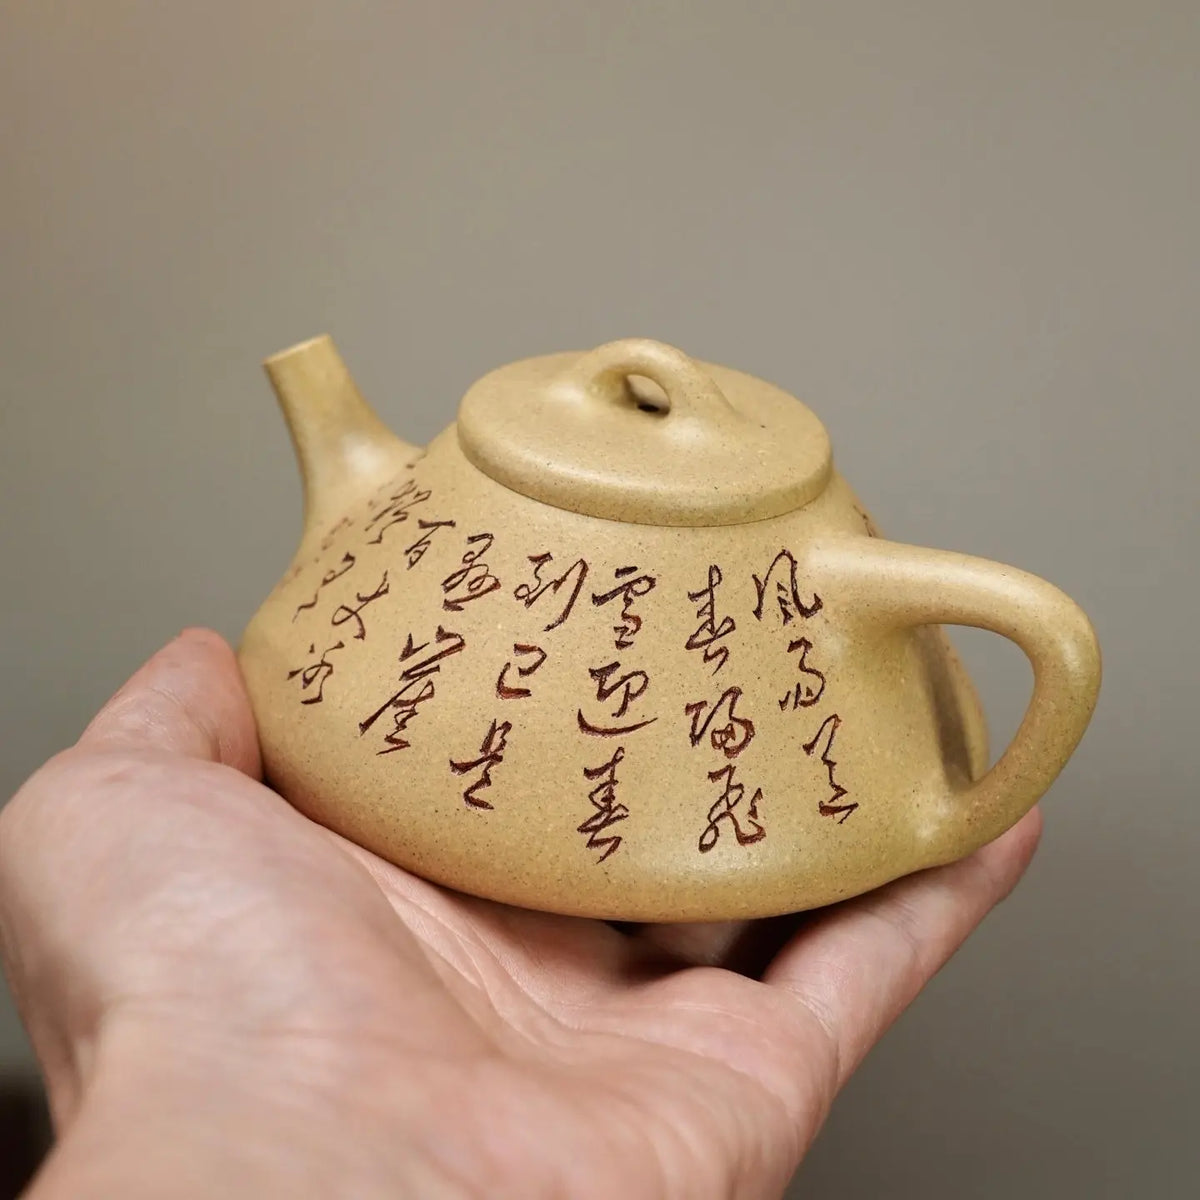 风雨送
春归飞
雪迎春
到已是
悬崖
百丈冰